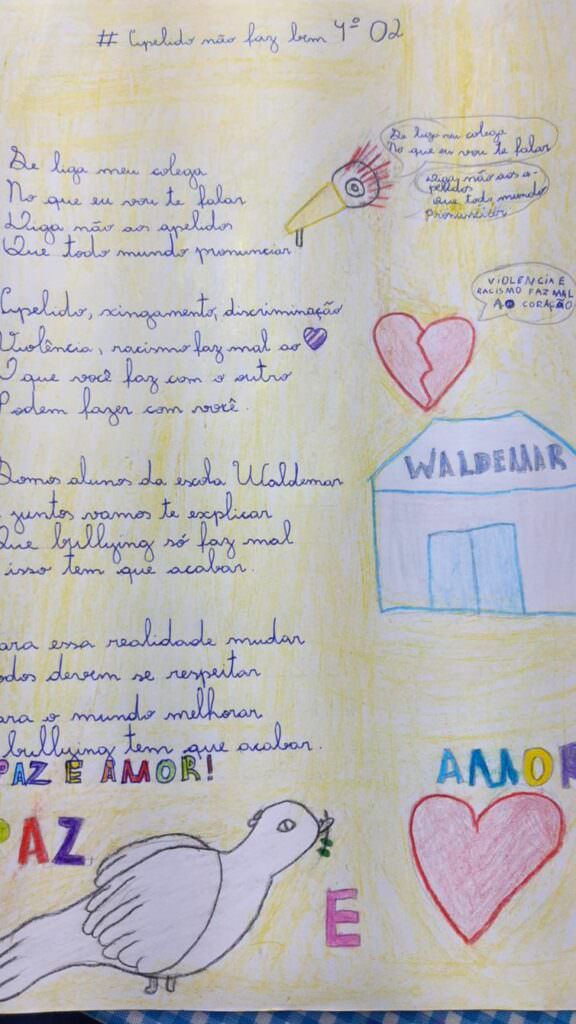 # Apelido não faz bem 4º 02
Se liga meu colega
No que eu vou te falar
Diga não aos apelidos
Que todo mundo pronunciar
Se liga meu colega
No que eu vou te falar
Diga não aos a-
pelidos
Que todo mundo
pronunciar
Apelido, xingamento, discriminação
Violência, racismo faz mal ao
O que você faz com o outro
Podem fazer com você.
VIOLENCIA E
RACISMO FAZ MAL
AO CORAÇÃO
Somos alunos da escola Waldemar
juntos vamos te explicar
Que bullying só faz mal
isso tem que acabar.
WALDEMAR
Para essa realidade mudar
todos devem se respeitar
Para o mundo melhorar
bullying tem que acabar.
PAZ E AMOR!
PAZ
E
AMOR